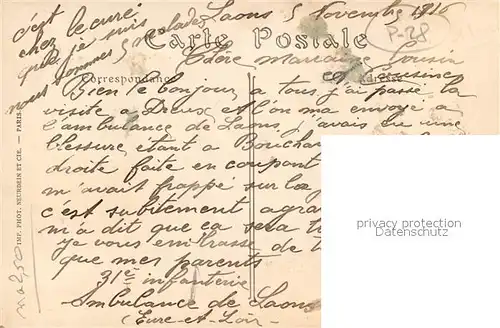 Laons 5 Novembre 1916
c'est le curé
chez
que je suis
nous sommes 5 malades
P-28
Carte Postale
Correspondance
Adresse
Chère Marraine Cousin
et Cousine
Bien le bonjour a tous j'ai passé la
visite a Dreux et l'on ma envoyé a
l'ambulance de Laons j'avais eu une
blessure étant a Bouchar
droite faite en coupant
m'avait frappé sur la
c'est subitement agra
m'a dit que ça sera t
je vous embrasse de t
que mes parents
31e infanterie
Ambulance de Laons
(Eure-et-Loir
IMP. PHOT. NEURDEIN ET CIE. — PARIS
privacy protection
watermark